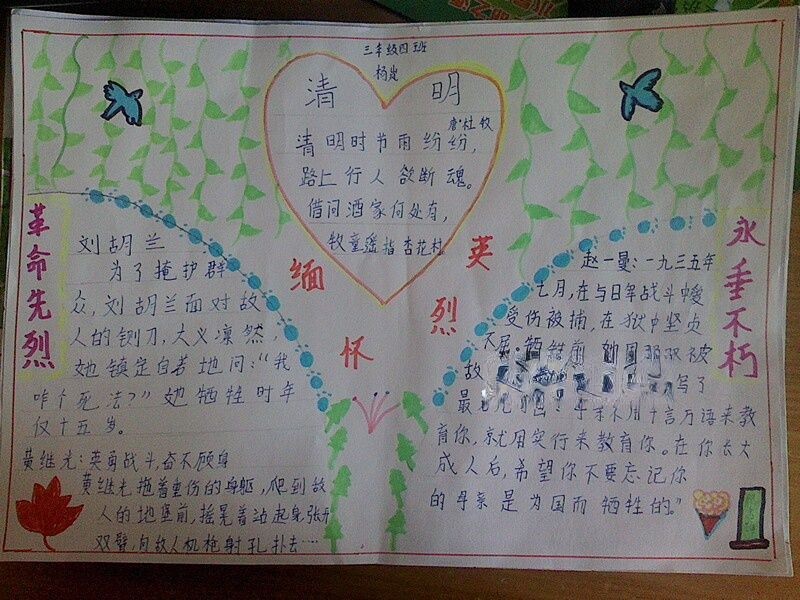 三年级四班
杨岚
清明
唐·杜牧
清明时节雨纷纷，
路上行人欲断魂。
借问酒家何处有，
牧童遥指杏花村。
缅怀
英烈
革命先烈
刘胡兰
为了掩护群
众，刘胡兰面对敌
人的铡刀，大义凛然，
她镇定自若地问："我
咋个死法？"她牺牲时年
仅十五岁。
黄继光：英勇战斗，奋不顾身
黄继光拖着重伤的身躯，爬到敌
人的地堡前，摇晃着站起身，张开
双臂，向敌人机枪射孔扑去……
永垂不朽
赵一曼：一九三五年
七月，在与日军战斗中
受伤被捕，在狱中坚贞
不屈。牺牲前
故 写了
最 不用千言万语来教
育你，就用实行来教育你。在你长大
成人后，希望你不要忘记你
的母亲是为国而牺牲的。"